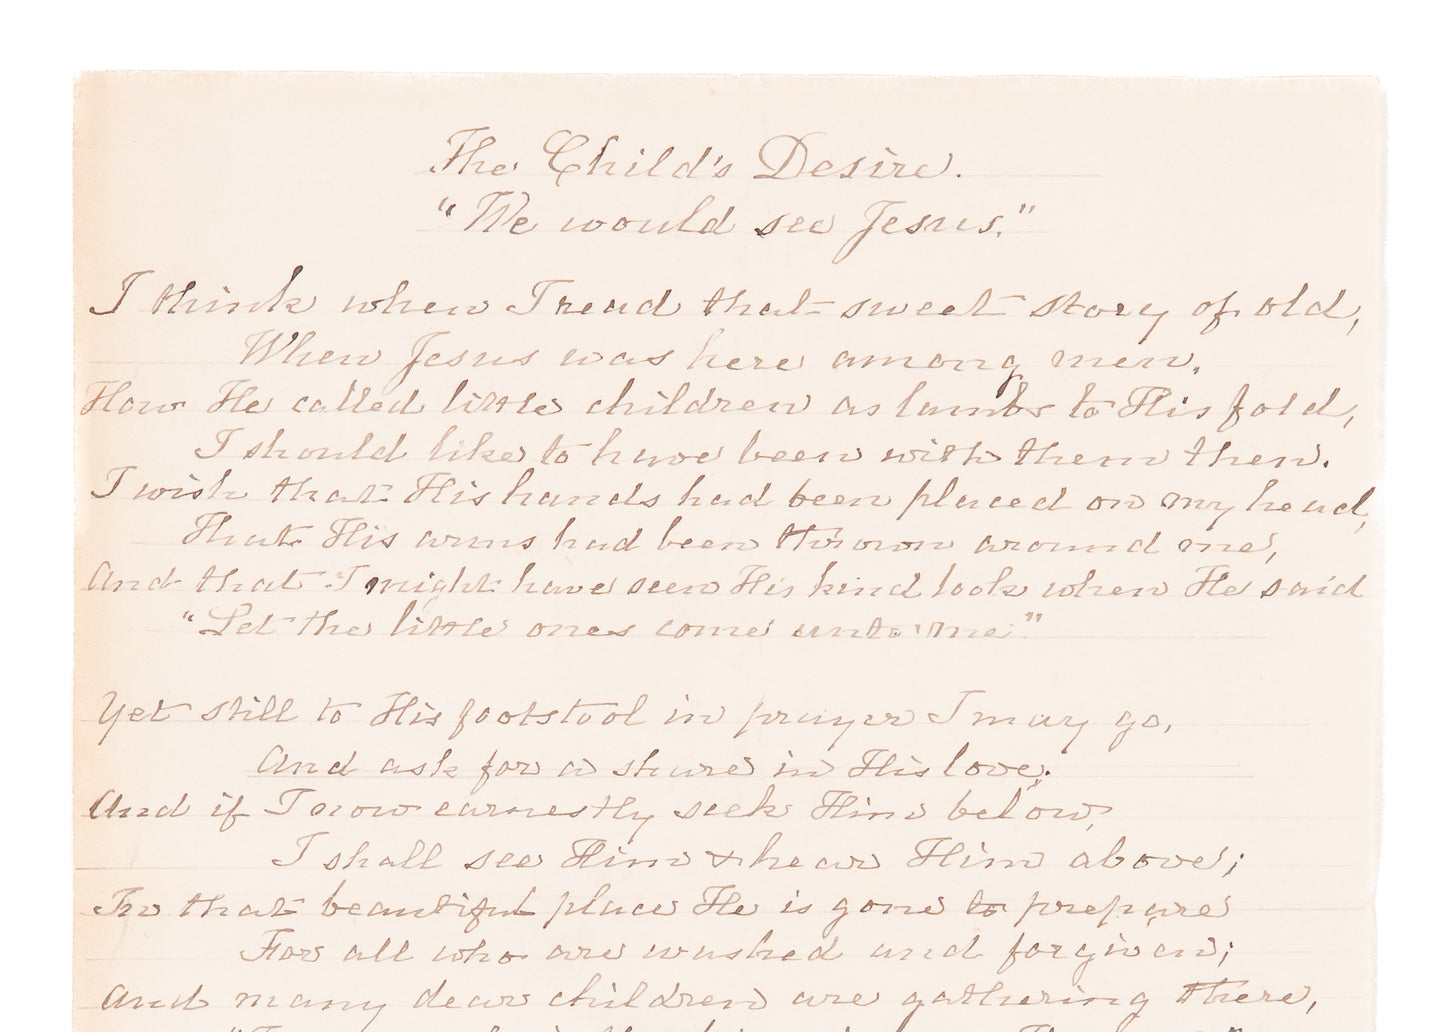 The Child's Desire.
"We would see Jesus."
I think when I read that sweet story of old,
When Jesus was here among men,
How He called little children as lambs to His fold,
I should like to have been with them then.
I wish that His hands had been placed on my head,
That His arms had been thrown around me,
And that I might have seen His kind look when He said
"Let the little ones come unto me."
Yet still to His footstool in prayer I may go,
And ask for a share in His love;
And if I now earnestly seek Him below,
I shall see Him & hear Him above;
In that beautiful place He is gone to prepare
For all who are washed and forgiven;
And many dear children are gathering there,